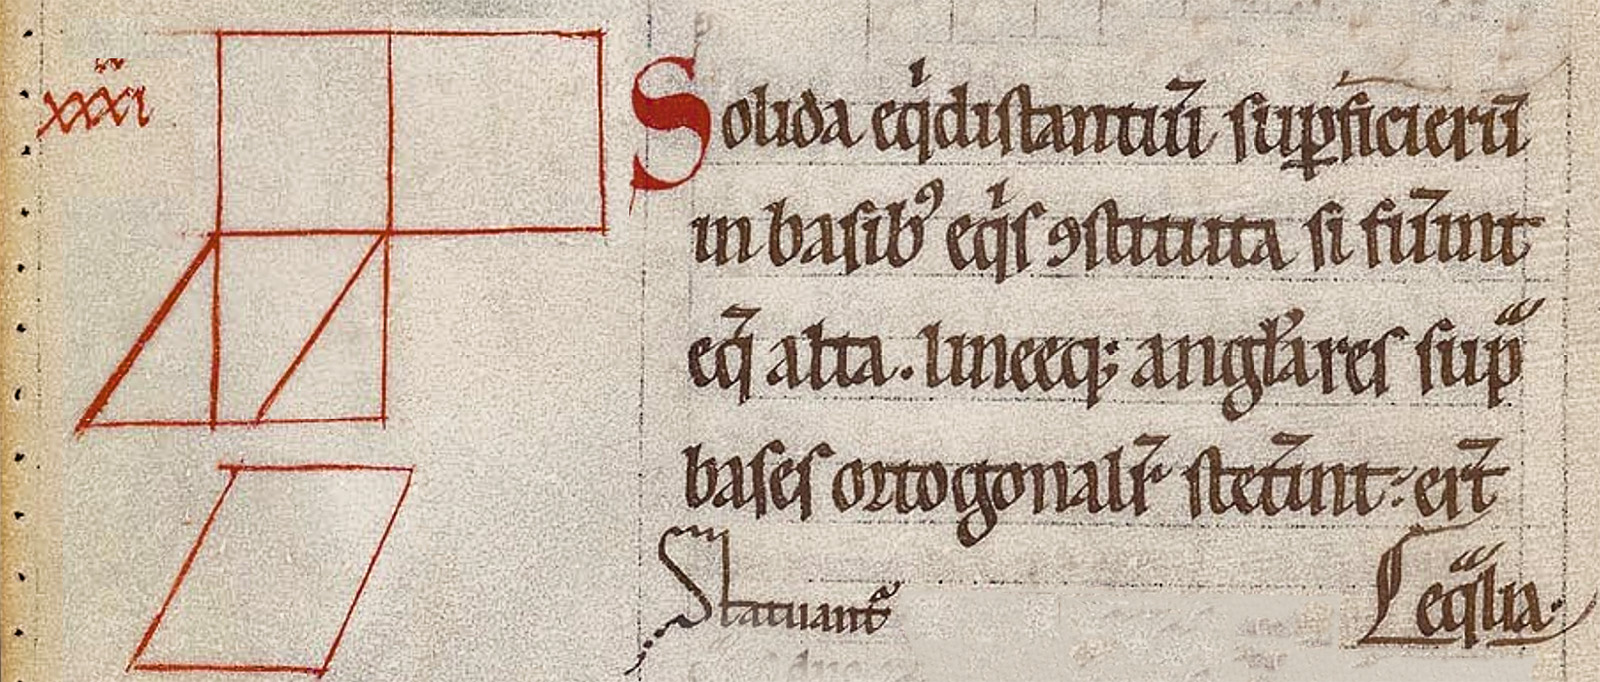 xxxi
Solida eq̇distantiū sup̲ficierū
in basib⁹ eq̇s ꝯstituta si fuīnt
eq̄ alta. lineeq; angłares sup̲
bases ortogonalr̄ stet̄int: er̄t
Statuant᷑
eq̃lia.